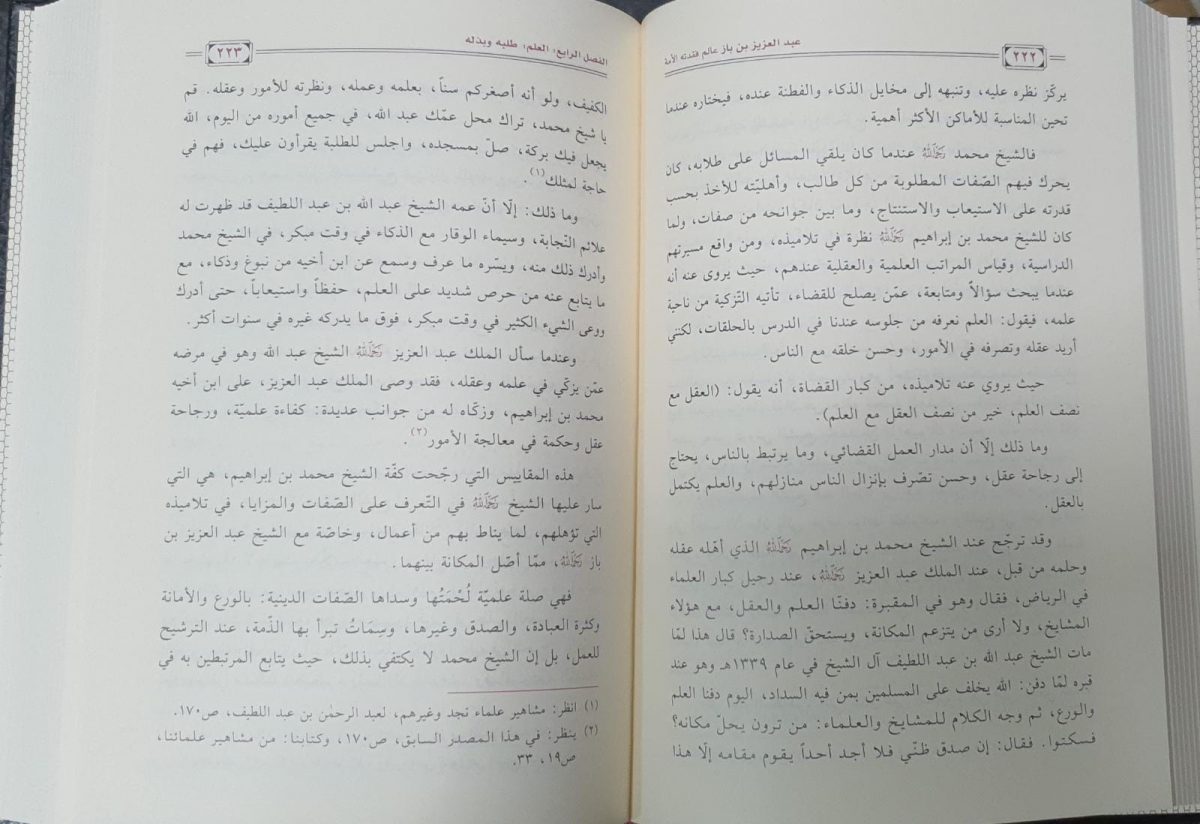 ٢٢٢
عبد العزيز بن باز عالم فقدته الأمة
يركّز نظره عليه، وتنبهه إلى مخايل الذكاء والفطنة عنده، فيختاره عندما
تحين المناسبة للأماكن الأكثر أهمية.
فالشيخ محمد رحمه الله عندما كان يلقي المسائل على طلابه، كان
يحرك فيهم الصّفات المطلوبة من كل طالب، وأهليّته للأخذ بحسب
قدرته على الاستيعاب والاستنتاج، وما بين جوانحه من صفات، ولما
كان للشيخ محمد بن إبراهيم رحمه الله نظرة في تلاميذه، ومن واقع مسيرتهم
الدراسية، وقياس المراتب العلمية والعقلية عندهم، حيث يروى عنه أنه
عندما يبحث سؤالاً ومتابعة، عمّن يصلح للقضاء، تأتيه التّزكية من ناحية
علمه، فيقول: العلم نعرفه من جلوسه عندنا في الدرس بالحلقات، لكنني
أريد عقله وتصرفه في الأمور، وحسن خلقه مع الناس.
حيث يروي عنه تلاميذه، من كبار القضاة، أنه يقول: (العقل مع
نصف العلم، خير من نصف العقل مع العلم).
وما ذلك إلّا أن مدار العمل القضائي، وما يرتبط بالناس، يحتاج
إلى رجاحة عقل، وحسن تصّرف بإنزال الناس منازلهم، والعلم يكتمل
بالعقل.
وقد ترجّح عند الشيخ محمد بن إبراهيم رحمه الله الذي أهّله عقله
وحلمه من قبل، عند الملك عبد العزيز رحمه الله، عند رحيل كبار العلماء
في الرياض، فقال وهو في المقبرة: دفنّا العلم والعقل، مع هؤلاء
المشايخ، ولا أرى من يتزعم المكانة، ويستحقّ الصدارة؟ قال هذا لمّا
مات الشيخ عبد الله بن عبد اللطيف آل الشيخ في عام ١٣٣٩هـ وهو عند
قبره لمّا دفن: الله يخلف على المسلمين بمن فيه السداد، اليوم دفنا العلم
والورع، ثم وجه الكلام للمشايخ والعلماء: من ترون يحلّ مكانه؟
فسكتوا. فقال: إن صدق ظنّي فلا أجد أحداً يقوم مقامه إلّا هذا
الفصل الرابع: العلم: طلبه وبذله
٢٢٣
الكفيف، ولو أنه أصغركم سناً، بعلمه وعمله، ونظرته للأمور وعقله. قم
يا شيخ محمد، تراك محل عمّك عبد الله، في جميع أموره من اليوم، الله
يجعل فيك بركة، صلّ بمسجده، واجلس للطلبة يقرأون عليك، فهم في
حاجة لمثلك(١).
وما ذلك: إلّا أنّ عمه الشيخ عبد الله بن عبد اللطيف قد ظهرت له
علائم النّجابة، وسيماء الوقار مع الذكاء في وقت مبكر، في الشيخ محمد
وأدرك ذلك منه، ويسّره ما عرف وسمع عن ابن أخيه من نبوغ وذكاء، مع
ما يتابع عنه من حرص شديد على العلم، حفظاً واستيعاباً، حتى أدرك
ووعى الشيء الكثير في وقت مبكر، فوق ما يدركه غيره في سنوات أكثر.
وعندما سأل الملك عبد العزيز رحمه الله الشيخ عبد الله وهو في مرضه
عمّن يزكّي في علمه وعقله، فقد وصى الملك عبد العزيز، على ابن أخيه
محمد بن إبراهيم، وزكّاه له من جوانب عديدة: كفاءة علميّة، ورجاحة
عقل وحكمة في معالجة الأمور(٢).
هذه المقاييس التي رجّحت كفّة الشيخ محمد بن إبراهيم، هي التي
سار عليها الشيخ رحمه الله في التّعرف على الصّفات والمزايا، في تلاميذه
التي تؤهلهم، لما يناط بهم من أعمال، وخاصّة مع الشيخ عبد العزيز بن
باز رحمه الله، ممّا أصّل المكانة بينهما.
فهي صلة علميّة لُحْمَتُها وسداها الصّفات الدينية: بالورع والأمانة
وكثرة العبادة، والصدق وغيرها، وسِمَاتُ تبرأ بها الذّمة، عند الترشيح
للعمل، بل إن الشيخ محمد لا يكتفي بذلك، حيث يتابع المرتبطين به في
(١) انظر: مشاهير علماء نجد وغيرهم، لعبد الرحمٰن بن عبد اللطيف، ص١٧٠.
(٢) ينظر: في هذا المصدر السابق، ص١٧٠، وكتابنا: من مشاهير علمائنا،
ص١٩، ٣٣.